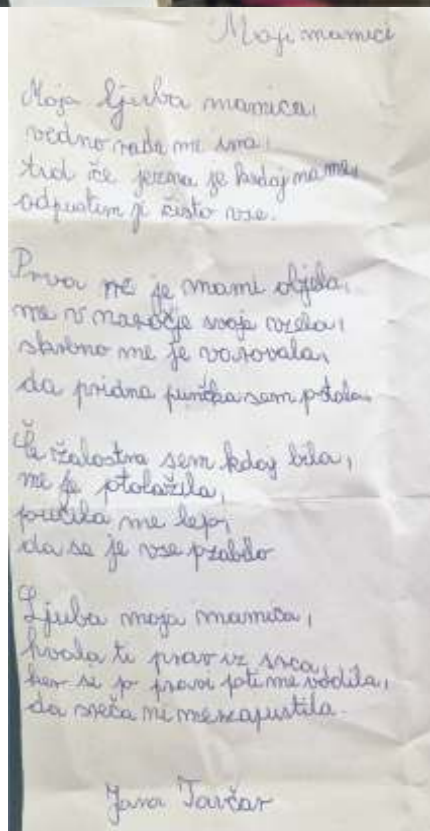 Moji mamici
Moja ljuba mamica,
vedno rada me ima,
tud če jezna je kdaj name,
odpustim ji čisto vse.
Prva me je mami objela,
me v naročje svoje vzela,
skrbno me je varovala,
da pridna punčka sem pstala.
Če žalostna sem kdaj bila,
me je ptolažila,
poučila me lepo,
da se je vse pzabilo
Ljuba moja mamica,
hvala ti prav iz srca,
ker si po pravi poti me vodila,
da sreča ni me zapustila.
Jana Tavčar